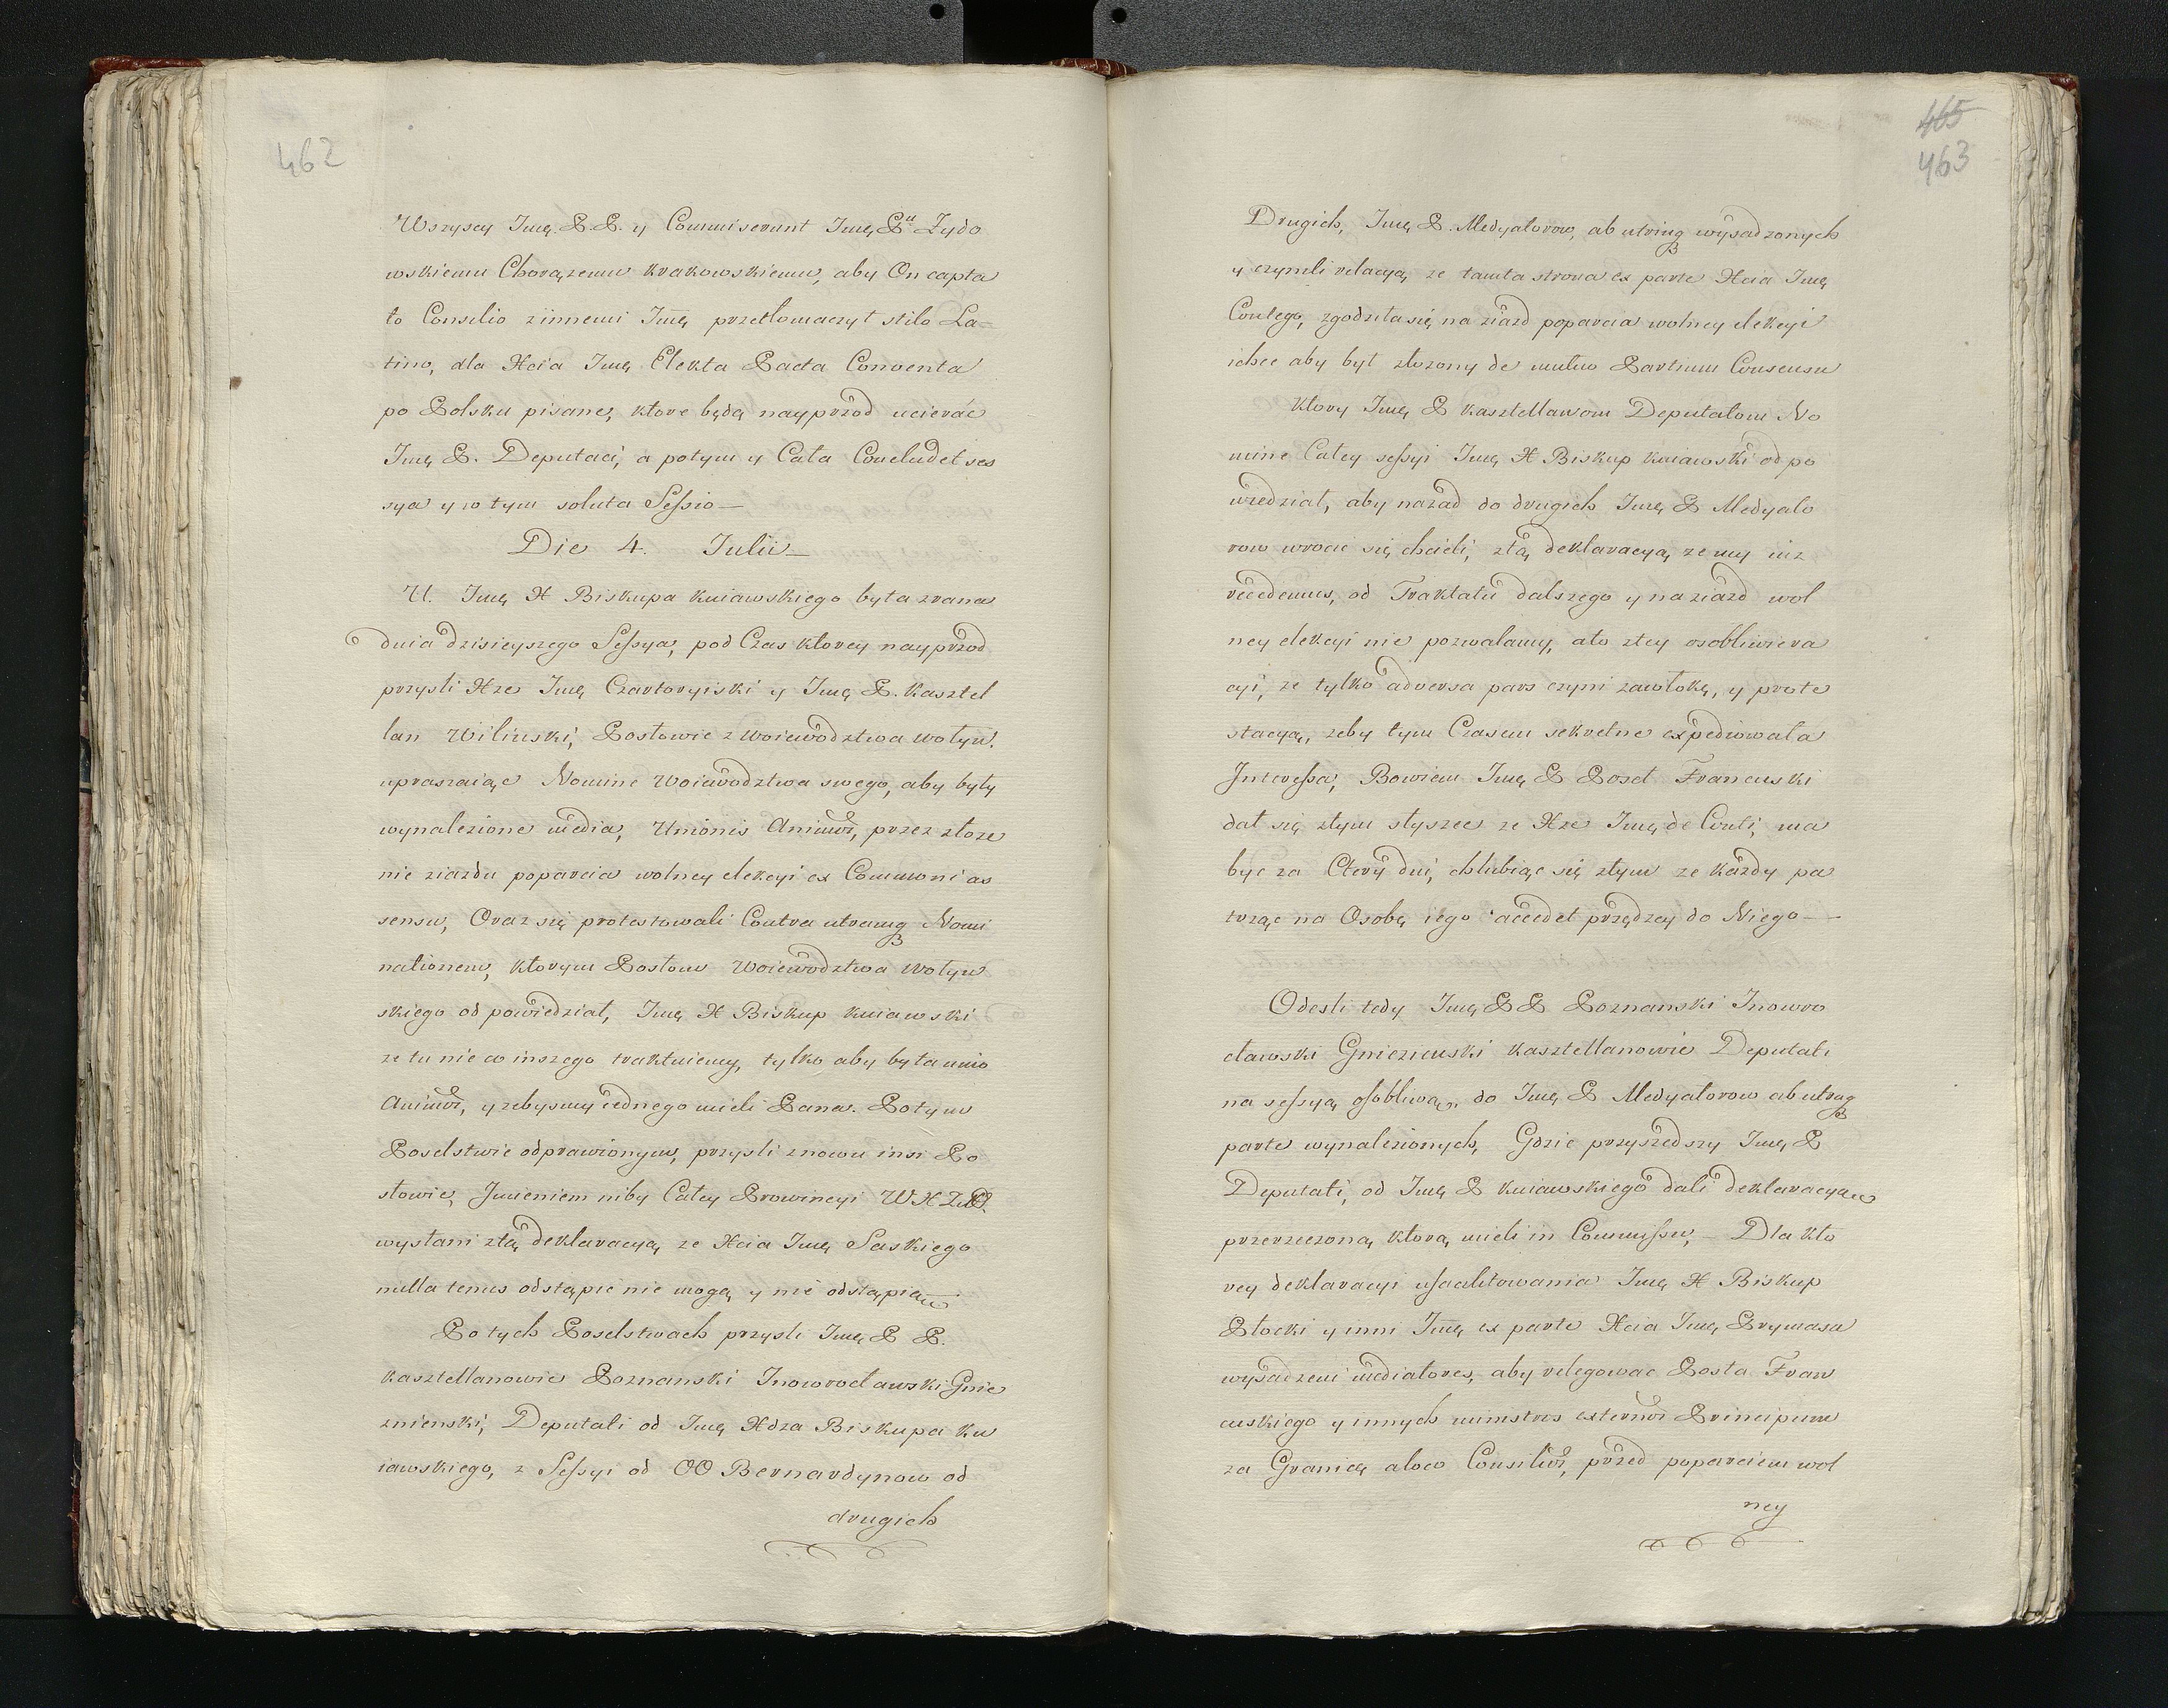 462
Wszyscy Jmę. P.P. y Commiserunt Jmę Pu Zydo
wskiemu Chorązemu krakowskiemu, aby On capta
to Consilio z innemi Jmę przetłomaczył stilo La=
tino, dla Xcia Jmę Elekta Pacta Conventa
po Polsku pisane, ktore będą nayprzod ucierać
Jmę P. Deputaci, a potym y Cała Concludet ses
sya y w tym soluta Sessio —
Die 4. Julii —
U. Jmę X Biskupa kuiawskiego była zvana
dnia dzisieyszego Sessya, pod Czas ktorey nayprzod
przysli Xze Jmę Czartoryiski y Jmę P. kasztel
lan Wilinski, Posłowie z Woiewodztwa Wołyń.
upraszaiąc Nomine Woiewodztwa swego, aby były
wynalezione media, Unionis Animor, przez złoze
nie ziazdu poparcia wolney elekcyi ex Communi as
sensu, Oraz się protestowali Contra utramq Nomi
nationem, ktorym Posłom Woiewodztwa Wołyn
skiego odpowiedział, Jmę X Biskup kuiawski
ze tu nie co inszego traktuiemy, tylko aby była unio
Animor, y zebysmy iednego mieli Pana. Po tym
Poselstwie odprawionym, przysli znowu insi Po
słowie, Jmieniem niby Całey Prowincyi
wysłani z tą deklaracyą ze Xcia Jmę Saskiego
nulla tenus odstąpic nie mogą y nie odstąpią
Po tych Poselstwach przysli Jmę P P.
kasztellanowie Poznanski Jnowrocławski Gnie
znienski, Deputati od Jmę Xdza Biskupa ku
iawskiego, z Sessyi od OO Bernardynow od
drugich
465
463
Drugich, Jmę P. Medyatorow, ab utrinq wysadzonych
y czynili relacyą ze tamta strona ex parte Xcia Jmę
Contego, zgodziła się na ziazd poparcia wolney elekcyi
ichce aby był złozony de mutuo Partium Consensu
ktory Jmę P kasztellanom Deputatom No
mine Całey sessyi Jmę X Biskup kuiawski odpo
wiedział, aby nazad do drugich Jmę P Medyato
row wrocic się chcieli, z tą deklaracyą ze my iuz
recedemus, od Traktatu dalszego y na ziazd wol
ney elekcyi nie pozwalamy, a to z tey osobliwie ra
cyi, ze tylko adversa pars czyni zawłokę, y prote
stacyą, zeby tym Czasem sekretne expediowała
Jnteressa, Bowiem Jmę P Poseł Francuski
dał się z tym słyszec ze Xze Jmę de Conti, ma
byc za Cztery dni, chlubiąc się z tym ze kazdy pa
trząc na Osobę iego accedet prządzey do Niego —
Odesli tedy Jmę P P Poznanski Jnowro
cławski Gniezienski kasztellanowie Deputati
na sessyą osobliwą, do Jmę P Medyatorow ab utraq
parte wynalezionych, Gdzie przyszedszy Jmę P
Deputati, od Jmę P kuiawskiego dali deklaracyam
przerzeczoną ktorą mieli in Commissu, — Dla kto
rey deklaracyi Jmę X Biskup
Płocki y inni Jmę ex parte Xcia Jmę Prymasa
wysadzeni mediatores, aby relegowac Posła Fran
cuskiego y innych ministros externor Principum
za Granicę aloco Consilior, przed poparciem wol
ney